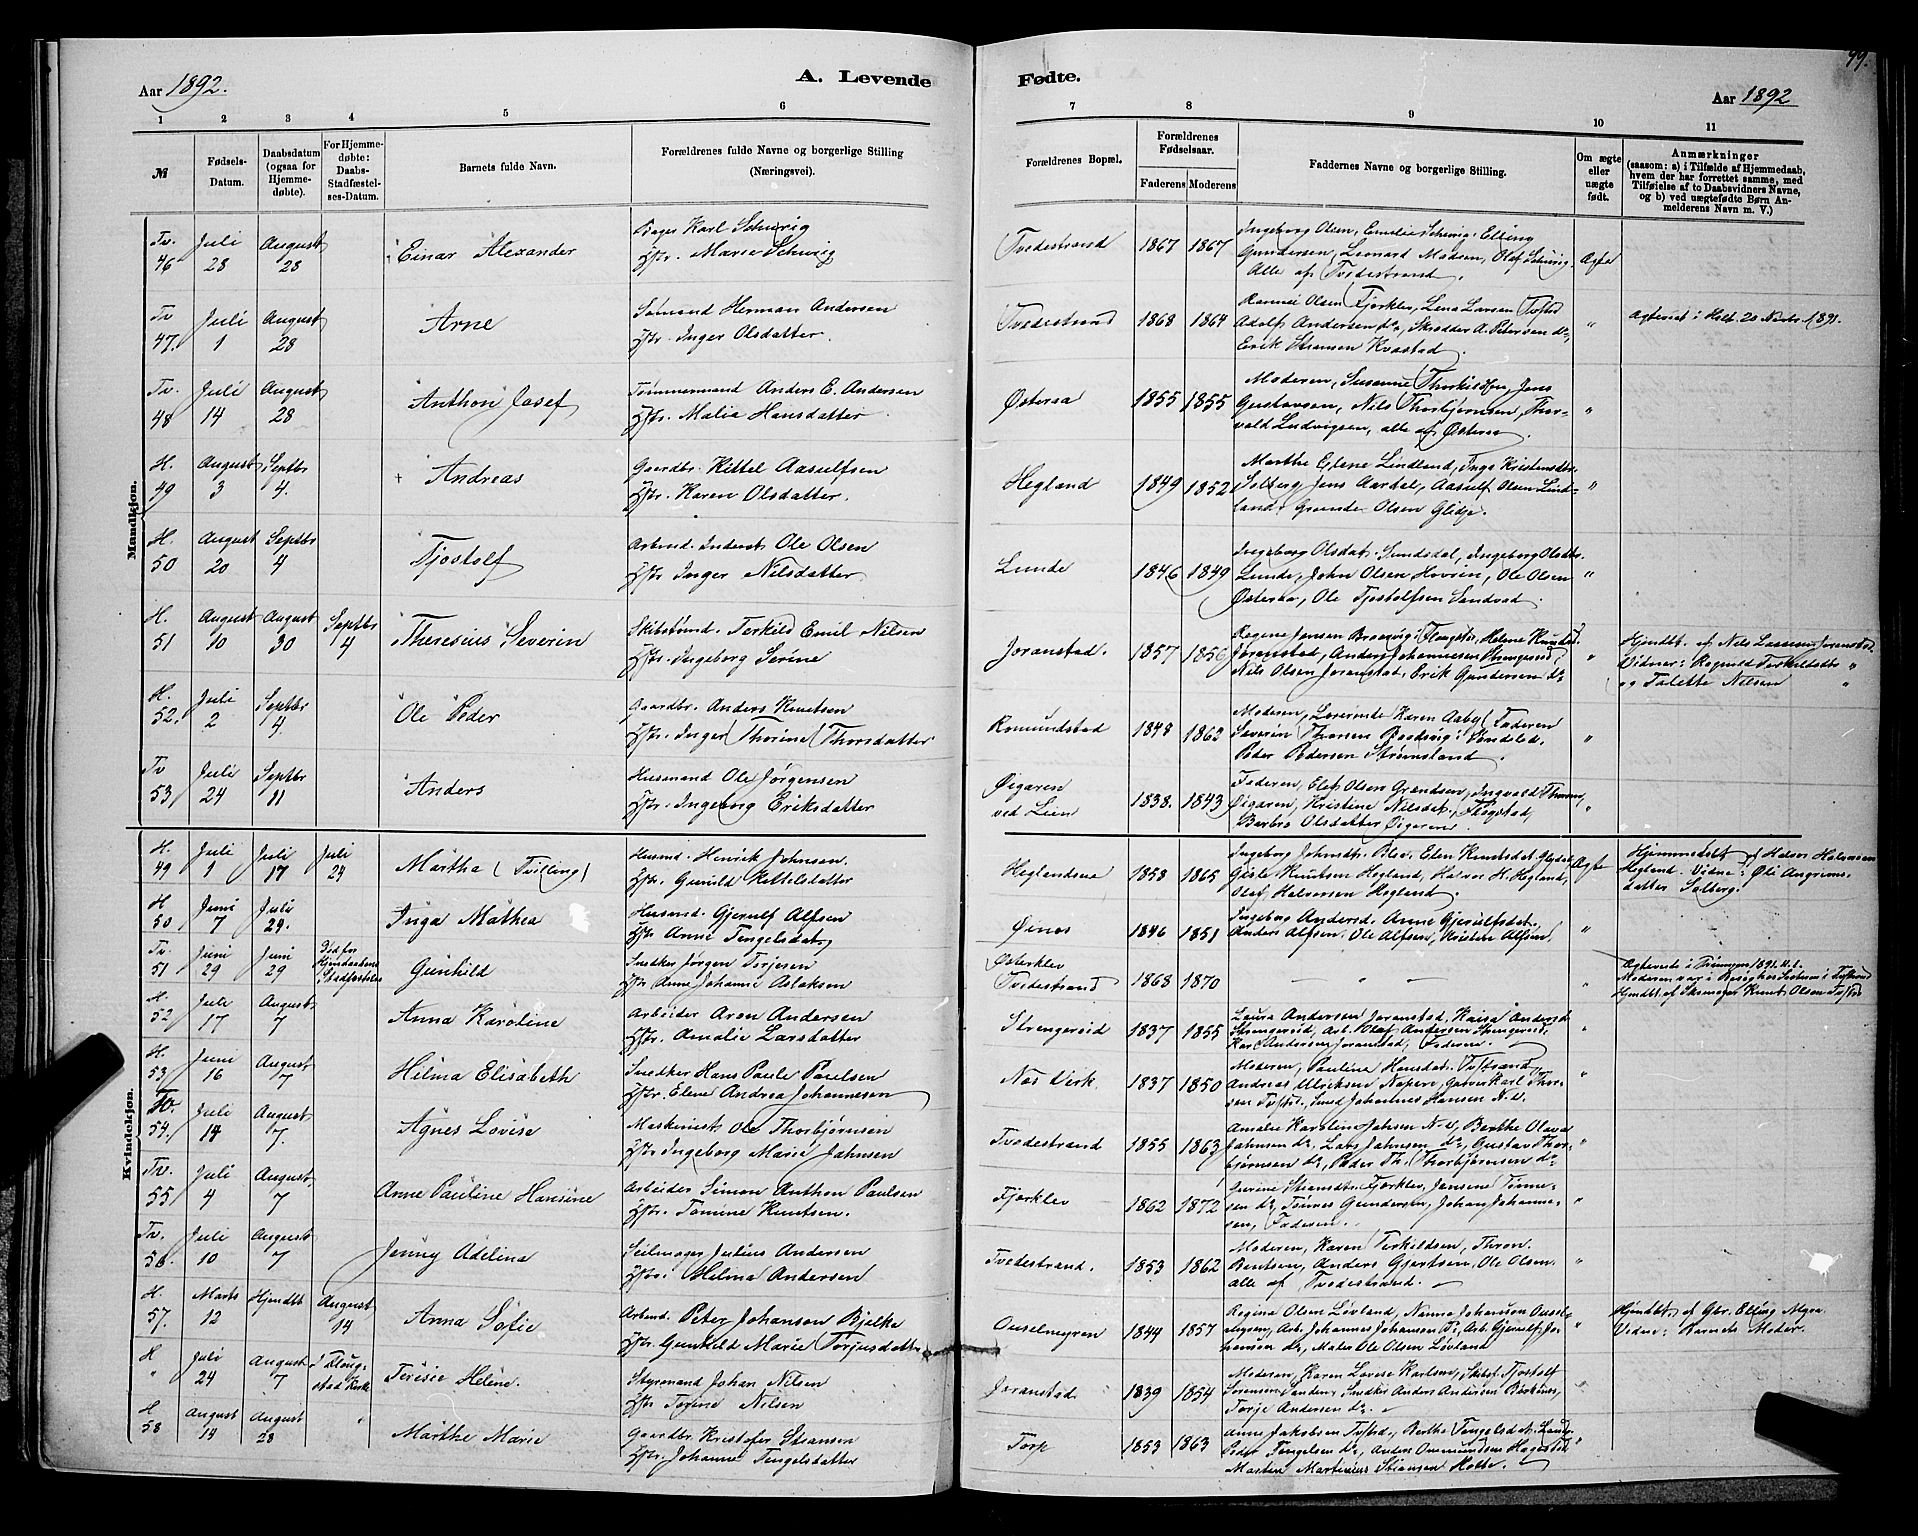 99.
Aar 1892.
A. Levende
Fødte.
Aar 1892
1 2 3 4 5 6 7 8 9 10 11
№
Fødsels-
Datum.
Daabsdatum
(ogsaa for
Hjemme-
døbte).
For Hjemme-
døbte:
Daabs-
Stadfæstel-
ses-Datum.
Barnets fulde Navn.
Forældrenes fulde Navne og borgerlige Stilling
(Næringsvei).
Forældrenes Bopæl.
Forældrenes
Fødselsaar.
Faderens Moderens
Faddernes Navne og borgerlige Stilling.
Om ægte
eller
uægte
født.
Anmærkninger
(saasom: a) i Tilfælde af Hjemmedaab,
hvem der har forrettet samme, med
Tilføielse af to Daabsvidners Navne,
og b) ved uægtefødte Børn An-
melderens Navn m. V.)
Mandkjøn.
Tv. 46 Juli 28 August 28 Einar Alexander
Bager Karl Schwig
Hstr. Marie Schwig
Tvedestrand 1867 1867
Ingeborg Olsen, Emelie Schwig, Elling
Gundersen, Leonard Madsen, Olaf Schwig,
Alle af Tvedestrand.
Ægte
Tv 47. Juli 1 August 28 Arne
Sømand Herman Andersen
Hstr. Inger Olsdatter.
Tvedestrand 1868 1864
Olsen Fjerklev, Lena Larsen
Adolf Andersen do, Skrædder A. Petersen do,
Erik Stransen Kvastad.
" Ægteviet i Holt 20 Novbr. 1891.
Tv. 48 Juli 14 August 28 Anthon Josef
Tømmermand Anders E. Andersen
Hstr. Malia Hansdatter.
Østeraa 1855 1855
Moderen, Susanne Thorkildsen, Jens
Gustavsen, Nils Thorbjørnsen, Thor-
vald Ludvigsen, alle af Østeraa.
"
H. 49 August 3 Septbr 4. Andreas
Gaardbr. Kittel Aasulfsen
Hstr. Karen Olsdatter.
Hegland 1849 1852
Marthe Elene Lindland, Inga Kristensdtr.
Solberg, Jens Aardal, Aasulf Olsen Lind-
land, Olsen Glidje.
"
H. 50 August 20 Septbr 4 Tjostolf
Arbmd. Ole Olsen
Hstr. Inger Nilsdatter.
Lunde 1846 1849
Ingeborg Olsdat. Sundsdal, Ingeborg Olsdtr.
Lunde, John Olsen Hovsen, Ole Olsen
Østeraa, Ole Tjostolfsen Sandvad.
"
H. 51 August 10 August 30 Septbr 4 Theresius Severin
Skibstømd. Terkild Emil Nilsen
Hstr. Ingeborg Serine
Joranstad. 1857 1856
Regine Jensen Flangstd, Helene Knudsd.
Joranstad, Anders Johannesen Strengereid,
Nils Olsen Joranstad, Erik Gundersen do
" Hjmdbt. af Nils Lassesen Joranstad
Vidner: Ragnild Terkelsdtr "
og Talette Nilsen "
H. 52. Juli 2 Septbr 4. Ole Peder
Gaardbr. Anders Knutsen
Hstr. Inger Thorine Thorsdatter
Romundstad 1848 1863
Moderen, Karen Aaby, Faderen
Severin Thorsen
Peder Pedersen Strømsland.
"
Tv 53 Juli 24 Septbr 11 Anders
Husmand Ole Jørgensen
Hstr. Ingeborg Eriksdatter
Øigaren
ved Lien
1838. 1843
Faderen, Elef Olsen Grændsen, Ingvald Thorsen,
Øigaren, Kristine Nilsdat. Flangstad,
Barbro Olsdatter Øigaren.
"
Kvindekjøn.
H. 49 Juli 1 Juli 17 Juli 24 Martha (Tvilling)
Husmd. Henrik Johnsen.
Hstr. Gunild Kittelsdatter
Heglandsaa 1858 1865
Ingeborg Johnsdtr. Elen Knutsdat. Glidje,
Gjøste Knutsen Hegland, Halvor H. Hegland,
Olaf Halvorsen Hegland.
Ægte
Hjemmedøbt af Halvor Halvorsen
Hegland. Vidne: Ole
datter Solberg.
H 50 Juni 7 Juli 29. Inga Mathea
Husmd. Gjerulf Alfsen
Hstr Anne Tengelsdat.
Øinas 1846 1851
Ingeborg Andersd. Anne Gjerulfsdat.
Anders Alfsen, Ole Alfsen, Kristen Alfsen.
"
Tv. 51 Juni 29 Juni 29 Gunhild
Snedker Jørgen Terjesen
Hstr Anne Johanne Aslaksen
Østerklev
Tvedestrand
1868 1870
" "
Ægteviede i Tromøen 1891
Moderen var i Besøg hos Søsteren i Tvdstrand
Hjmdbt. af Knut Olsen
H. 52 Juli 17 August 7 Anna Karoline
Arbeider Aren Andersen
Hstr. Amalie Larsdatter
Strengereid 1837 1855
Laura Andersen Joranstad, Kaisa Andersd.
Strengereid, Arb. Olaf Andersen Strengereid,
Karl Andersen Joranstad, Faderen.
"
H. 53 Juni 16 August 7 Hilma Elisabeth
Snedker Hans Paule Paulsen
Hstr. Elene Andrea Johannesen
Næs Verk 1837 1850
Moderen, Paulina Hansdat. Tvdstrand,
Andreas Ulriksen Karl Thor-
sen Smed Johannes Hansen N.V.
"
Tv. 54. Juli 14 August 7. Agnes Lovise
Maskinist Ole Thorbjørnsen
Hstr Ingeborg Marie Jahnsen
Tvedestrand 1855 1863
Amalie Karoline Jahnsen N.V, Berthe Olava
Jahnsen do, Lars Jahnsen do, Gustav Thor-
bjørnsen do, Peder Th. Thorbjørnsen do
"
Tv. 55 Juli 4 August 7 Anne Pauline Hansine
Arbeider Simon Anthon Paulsen
Hstr. Tomine Knutsen.
Fjerklev 1862 1872
Fjerklev, Jensine
sen do, Tønnes Gundersen, Johan Johanne-
sen, Faderen.
"
Tv. 56. Juli 10 August 7 Jenny Adelina
Seilmager Julius Andersen
Hstr. Helma Andersen
Tvedestrand. 1853 1862
Moderen, Karen Terkildsen, Thron
Bentsen, Anders Gjertsen, Ole Olsen
alle af Tvedestrand.
"
H. 57. Marts 12 Hjemdbt August 14 Anna Sofie
Arbmd. Peter Johansen Bjelke
Hstr. Gunhild Marie Torjusdatter
Ouselmyren 1844 1857
Regina Olsen Løvland, Nanna Johansen Ousel-
myren, Arb. Johannes Johansen do, Arb. Gjerulf Jo-
hansen do, Maler Ole Olsen Løvland
"
Hjmdbt. af Gbr. Elling Myra.
Vidne: Barnets Moder.
H " Juli 24 August 7 i Flang-
stad Kirke
Teresie Helene.
Styrmand Johan Nilsen
Hstr Torine Nilsen
Joranstad 1839 1854
Moderen, Karen Lovise Karlsen, Tjostolf
Sørensen Sanden, Snedker Anders Andersen
Torje Andersen do.
"
H 58 August 14 August 28 " Marthe Marie
Gaardbr Kristofer Stiansen
Hstr. Johanne Tengelsdatter
Torp 1853 1863
Anne Jakobsen Tvdstrd., Berthe Tengelsdat.
Peder Tengelsen do, Anders
Marten Martinius Stiansen Holte.
"